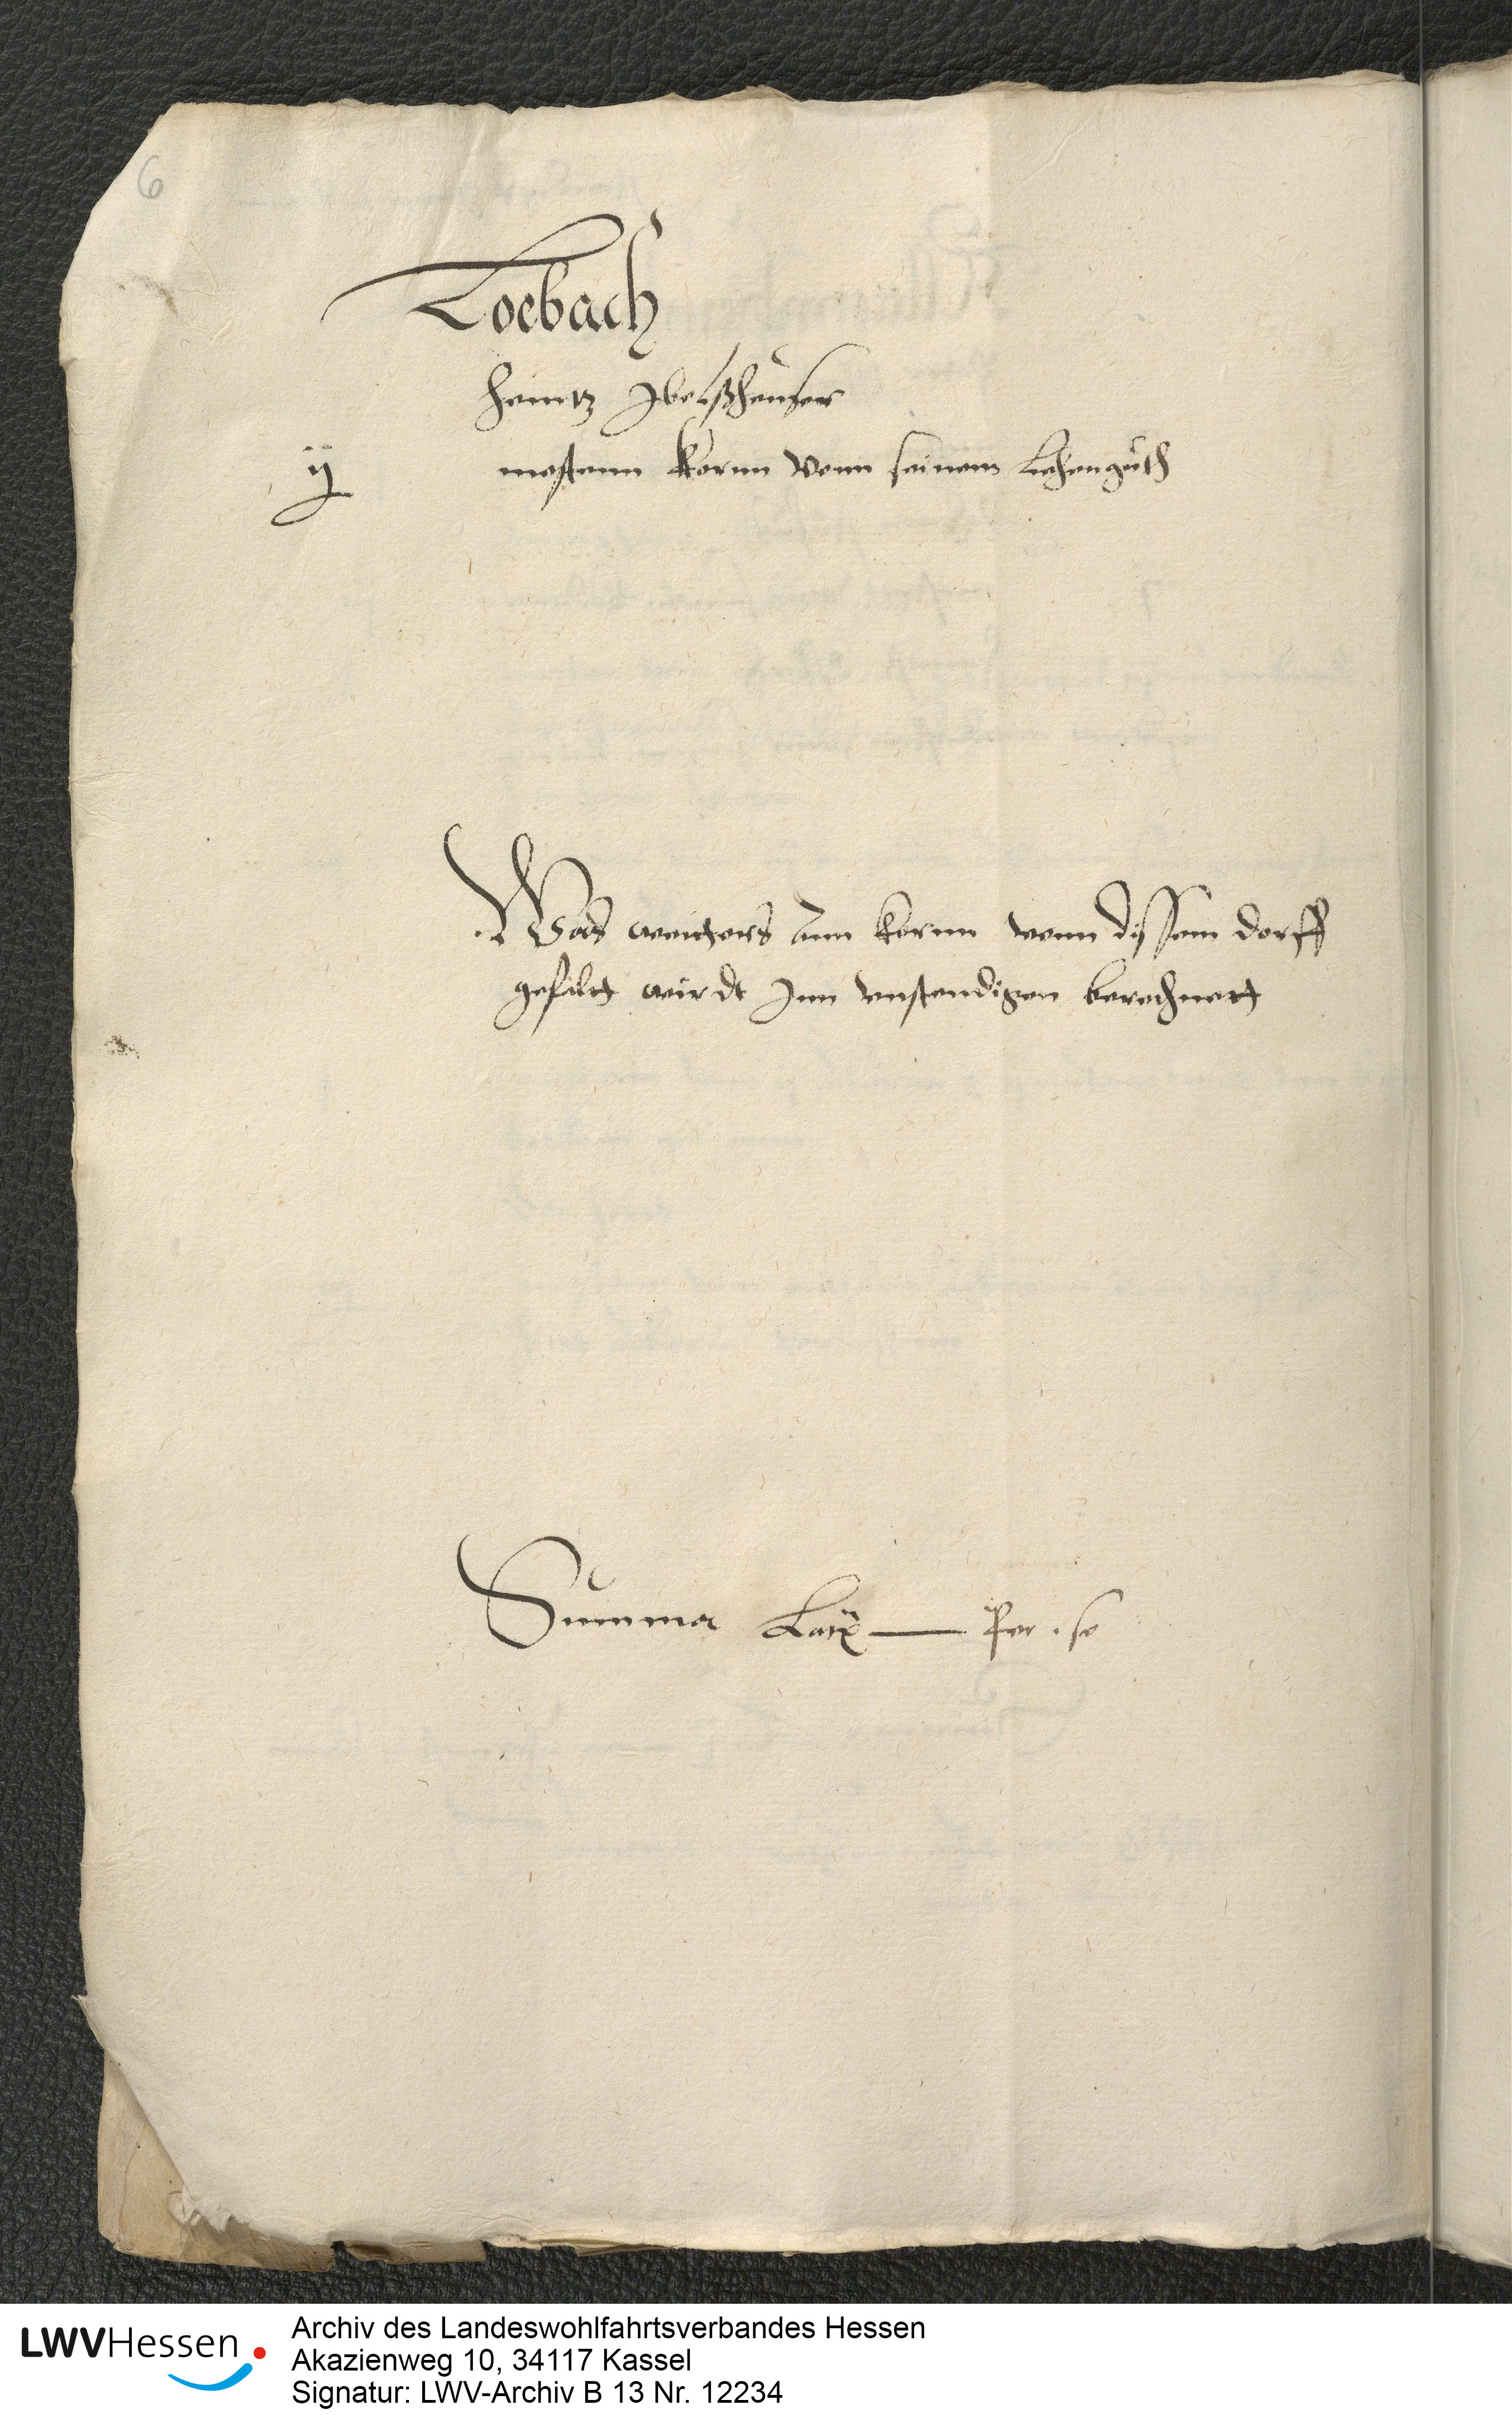 6
Loebach
Heintz Ibelßheuser
ij mestenn kornn vonn seinem Lehenguth
Was weithers ann kornn vonn dyssem dorff
gefaltt wirdt Inn vnstendigen berechnett
Summa Per se
LWVHessen
Archiv des Landeswohlfahrtsverbandes Hessen
Akazienweg 10, 34117 Kassel
Signatur: LWV-Archiv B 13 Nr. 12234